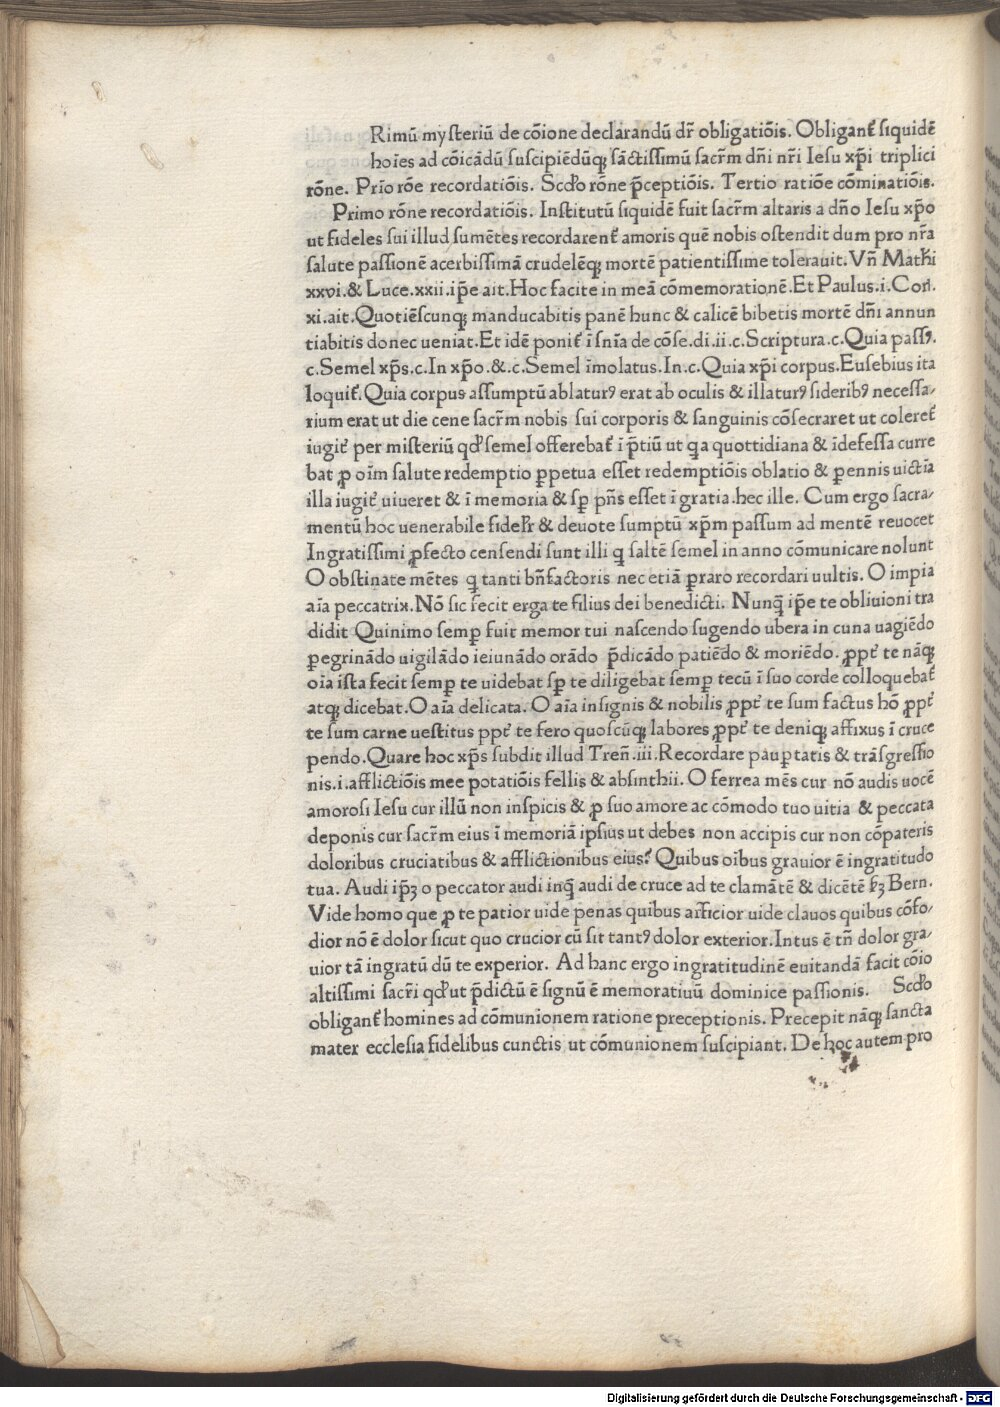 Rimū mysteriū de cōione declarandū dr̄ obligatiōis. Obligant᷑ siquidē
hoīes ad cōicādū suscipiēdūqꝫ sāctissimū sacr̄m dñi nr̄i Iesu xp̄i triplici
rōne. Prīo rōe recordatiōis. Scd̄o rōne p̄ceptiōis. Tertio ratiōe cōminatiōis.
Primo rōne recordatiōis. Institutū siquidē fuit sacr̄m altaris a dño Iesu xp̄o
ut fideles sui illud sumētes recordarent᷑ amoris quē nobis ostendit dum pro nr̄a
salute passionē acerbissimā crudelēqꝫ mortē patientissime tolerauit. Vñ Mathi
xxvi. & Luce. xxii. ip̄e ait. Hoc facite in meā cōmemorationē. Et Paulus. i. Corī.
xi. ait. Quotiēscunqꝫ manducabitis panē hunc & calicē bibetis mortē dñi annun
tiabitis donec ueniat. Et idē ponit᷑ ī snīa de cōse. di. ii. c. Scriptura. c. Quia passꝰ.
c. Semel xp̄s. c. In xp̄o. &. c. Semel īmolatus. In. c. Quia xp̄i corpus. Eusebius ita
loquit᷑. Quia corpus assumptū ablaturꝰ erat ab oculis & illaturꝰ sideribꝰ necessa/
rium erat ut die cene sacr̄m nobis sui corporis & sanguinis cōsecraret ut coleret᷑
iugit᷑ per misteriū qd̄ semel offerebat᷑ ī p̄tiū ut ꝗa quottidiana & īdefessa curre
bat ꝓ oīm salute redemptio ꝑpetua esset redemptiōis oblatio & ꝑennis uictīa
illa iugit᷑ uiueret & ī memoria & sꝑ pñs esset ī gratia. hec ille. Cum ergo sacra/
mentū hoc uenerabile fidel̄r & deuote sumptū xp̄m passum ad mentē reuocet
Ingratissimi ꝓfecto censendi sunt illi ꝗ saltē semel in anno cōmunicare nolunt
O obstinate mētes ꝗ tanti bñfactoris nec etiā ꝑraro recordari uultis. O impia
aīa peccatrix. Nō sic fecit erga te filius dei benedicti. Nunꝗ̄ ip̄e te obliuioni tra
didit Quinimo semꝑ fuit memor tui nascendo sugendo ubera in cuna uagiēdo
ꝑegrinādo uigilādo ieiunādo orādo p̄dicādo patiēdo & moriēdo. ꝓpt᷑ te nāqꝫ
oīa ista fecit semꝑ te uidebat sꝑ te diligebat semꝑ tecū ī suo corde colloquebat᷑
atqꝫ dicebat. O aīa delicata. O aīa insignis & nobilis ꝓpt᷑ te sum factus hō ꝓpt᷑
te sum carne uestitus ppt᷑ te fero quoscūqꝫ labores ꝓpt᷑ te deniqꝫ affixus ī cruce
pendo. Quare hoc xp̄s subdit illud Treñ. iii. Recordare pauꝑtatis & trāsgressio
nis. i. afflictiōis mee potatiōis fellis & absinthii. O ferrea mēs cur nō audis uocē
amorosi Iesu cur illū non inspicis & ꝓ suo amore ac cōmodo tuo uitia & peccata
deponis cur sacr̄m eius ī memoriā ipsius ut debes non accipis cur non cōpateris
doloribus cruciatibus & afflictionibus eius? Quibus oibus grauior ē ingratitudo
tua. Audi ip̄ꝫ o peccator audi inꝗ̄ audi de cruce ad te clamātē & dicētē ẜꝫ Bern.
Vide homo que ꝓ te patior uide penas quibus afficior uide clauos quibus cōfo/
dior nō ē dolor sicut quo crucior cū sit tantꝰ dolor exterior. Intus ē tñ dolor gra/
uior tā ingratū dū te experior. Ad hanc ergo ingratitudinē euitandā facit cōio
altissimi sacr̄i qd̄ ut p̄dictū ē signū ē memoratiuū dominice passionis. Scd̄o
obligant᷑ homines ad cōmunionem ratione preceptionis. Precepit nāqꝫ sancta
mater ecclesia fidelibus cunctis ut cōmunionem suscipiant. De hoc autem pro
Digitalisierung gefördert durch die Deutsche Forschungsgemeinschaft - DFG